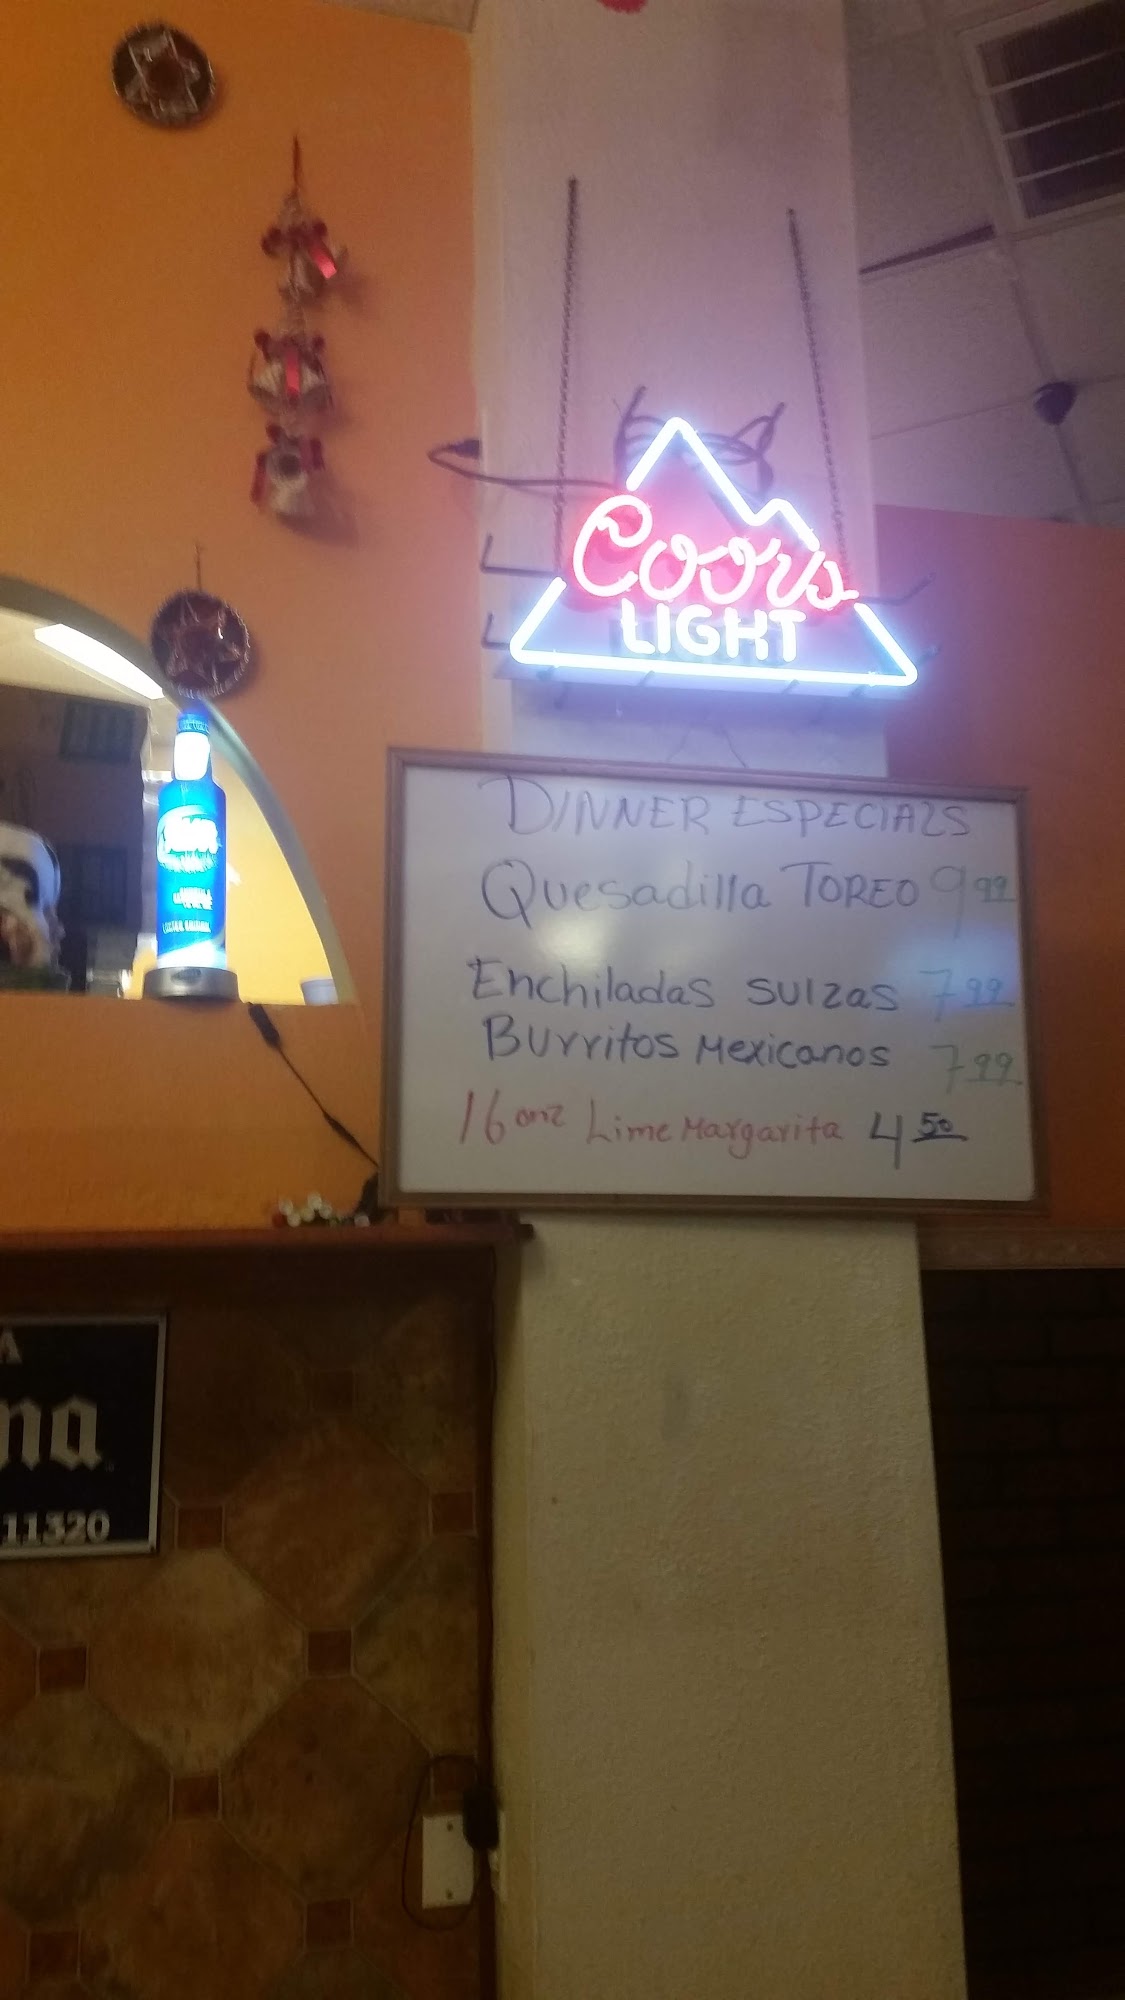 Coors
LIGHT
DINNER ESPECIALS
Quesadilla TOREO 9 99
Enchiladas SUIZAS 7 99
Burritos Mexicanos 7 99
16 onz Lime Margarita 4 50
A
na
11320